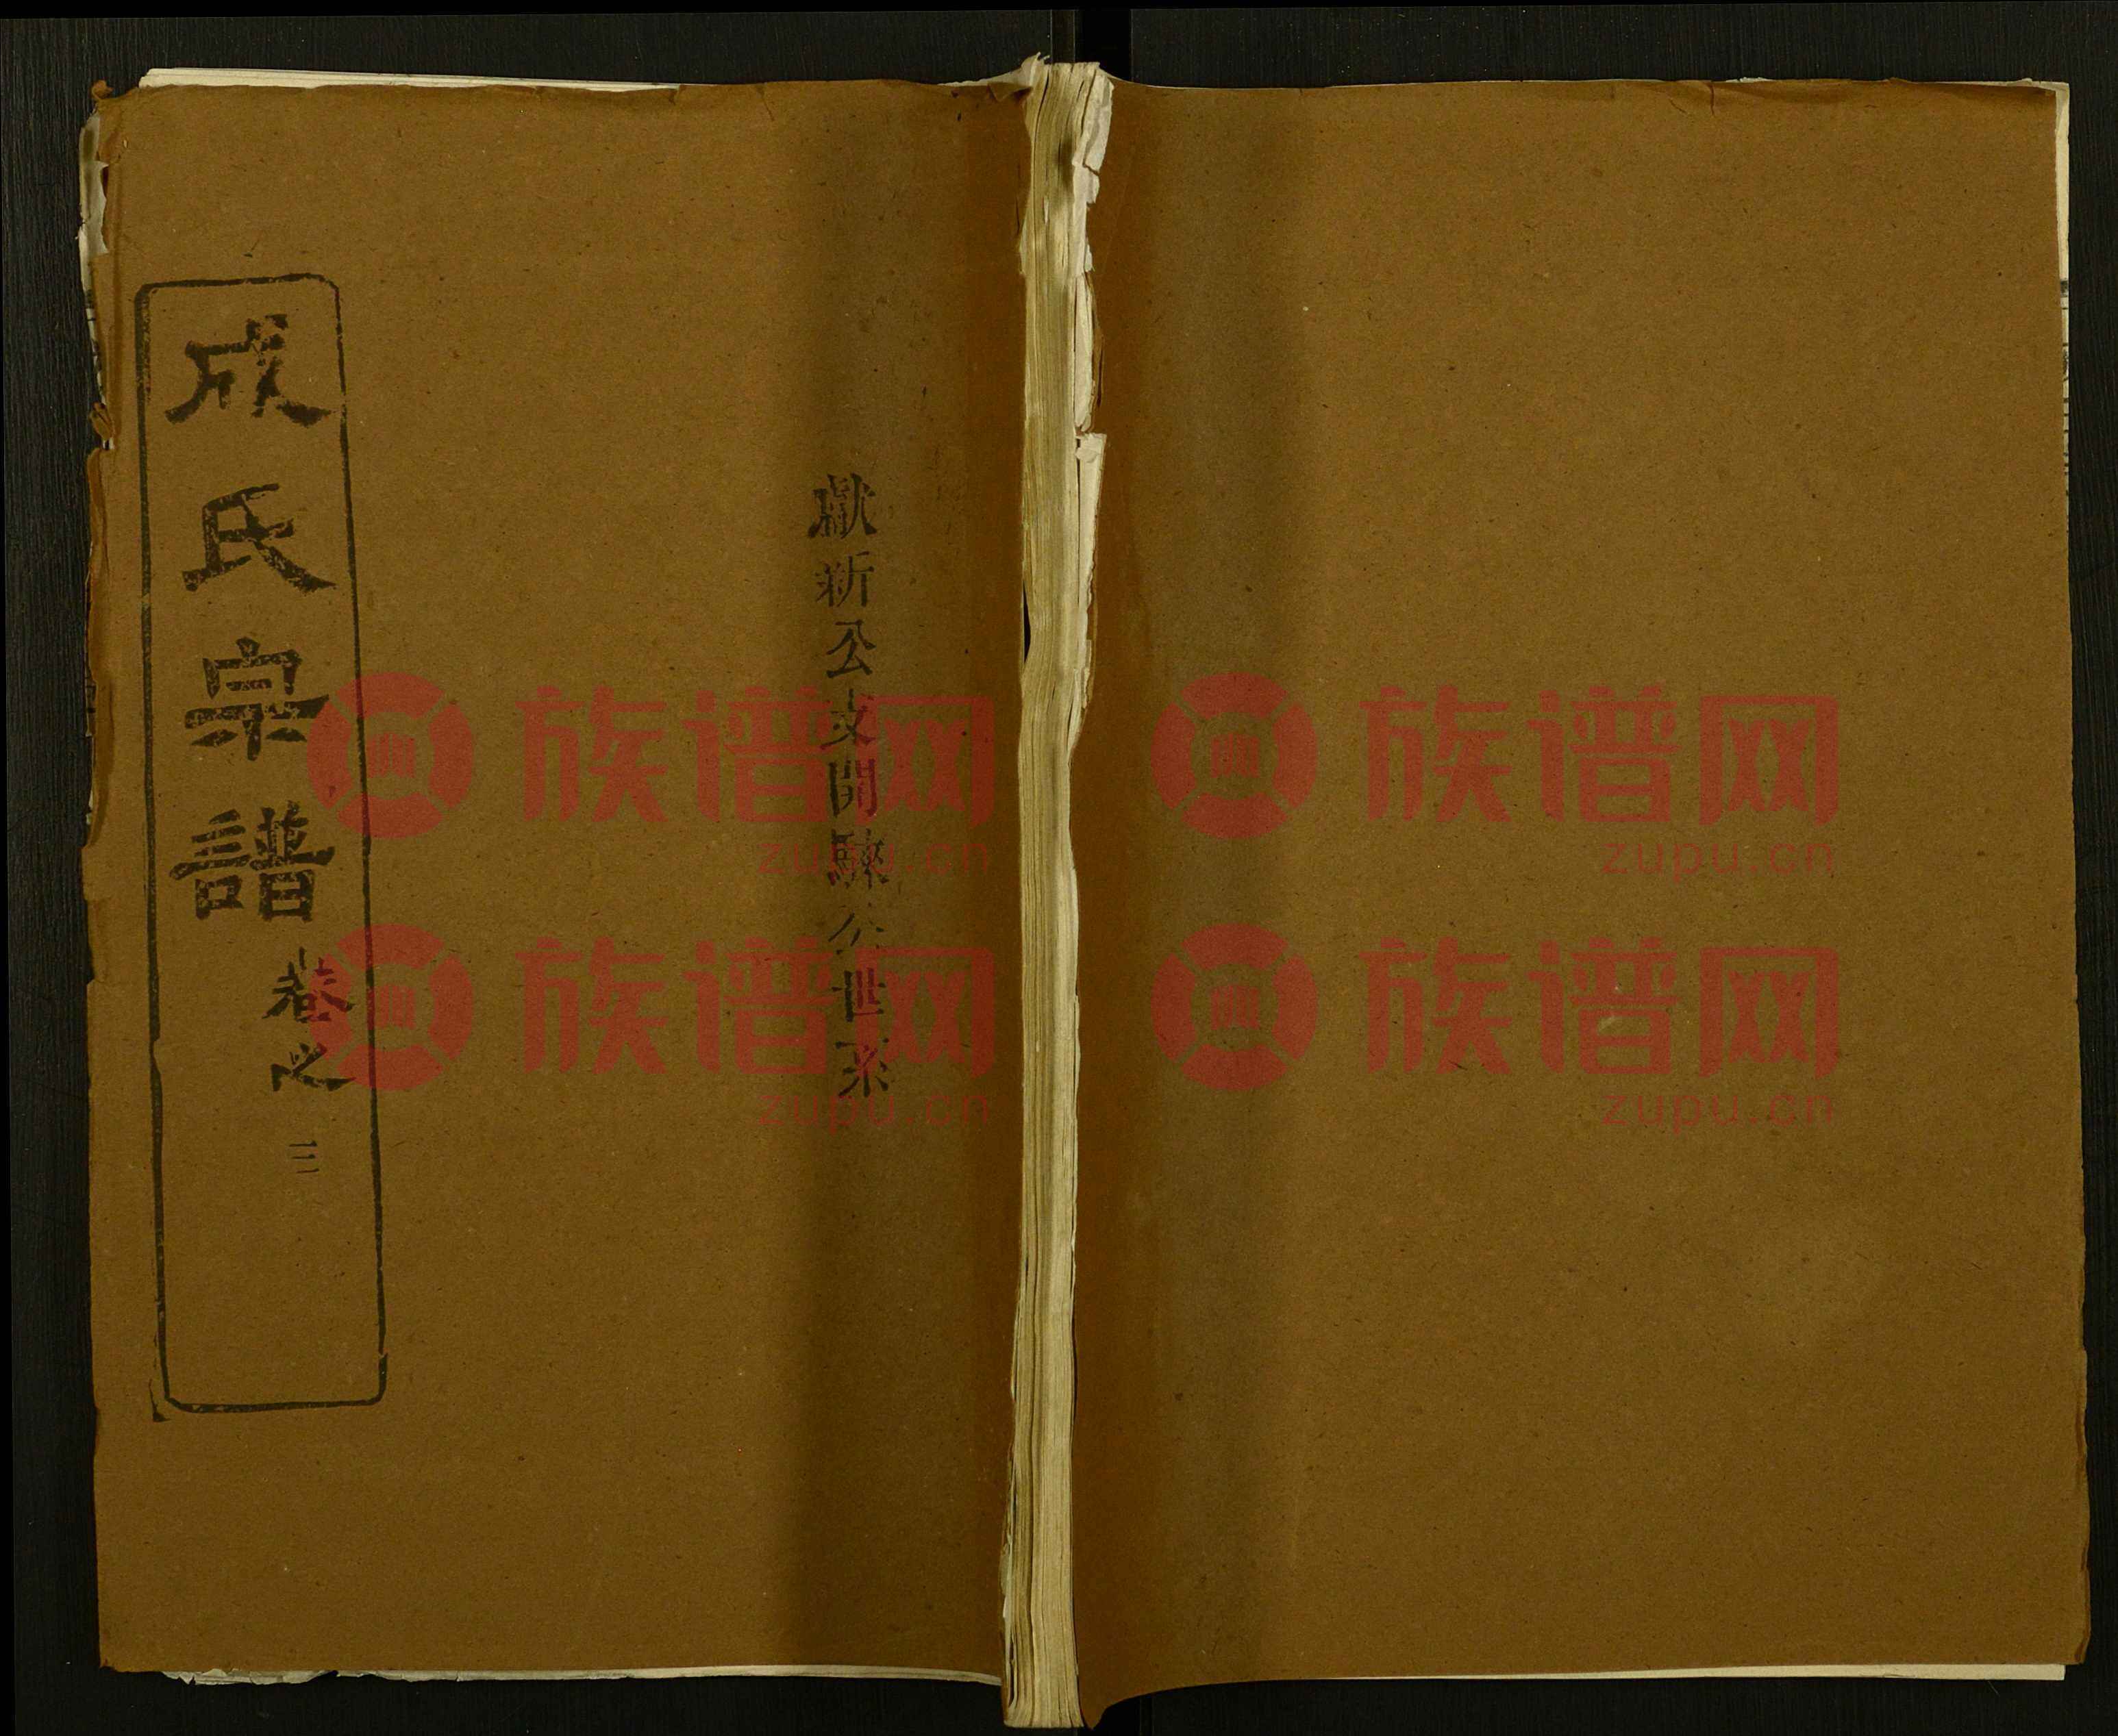 獻新公支開騋公世系
成氏宗譜
卷之三
族谱网
zupu.cn
族谱网
zupu.cn
族谱网
zupu.cn
族谱网
zupu.cn